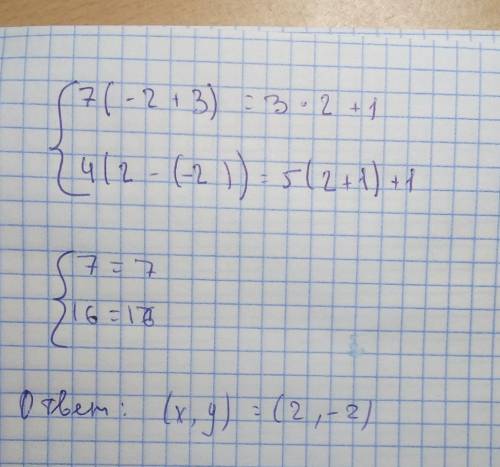 7(-2+3) = 3·2+1
4(2-(-2)) = 5(2+1)+1
7 = 7
16 = 16
Ответ: (x,y) = (2,-2)